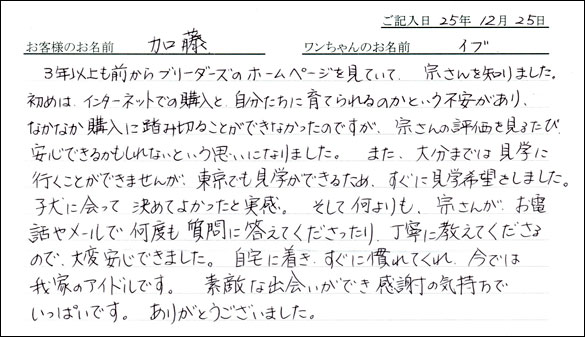 ご記入日 25年 12月 25日
お客様のお名前 加藤 ワンちゃんのお名前 イブ
3年以上も前からブリーダーズのホームページを見ていて、宗さんを知りました。
初めは、インターネットでの購入と、自分たちに育てられるのかという不安があり、
なかなか購入に踏み切ることができなかったのですが、宗さんの評価を見るたび、
安心できるかもしれないという思いになりました。 また、大分までは見学に
行くことができませんが、東京でも見学ができるため、すぐに見学希望をしました。
子犬に会って 決めてよかったと実感。 そして何よりも、宗さんが、お電
話やメールで何度も質問に答えてくださったり、丁寧に教えてくださる
ので、大変安心できました。 自宅に着き、すぐに慣れてくれ、今では
我家のアイドルです。 素敵な出会いができ感謝の気持ちで
いっぱいです。 ありがとうございました。